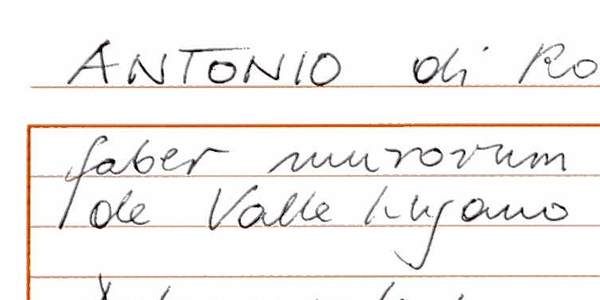 ANTONIO di Ro
faber murorum
de Valle Lugano